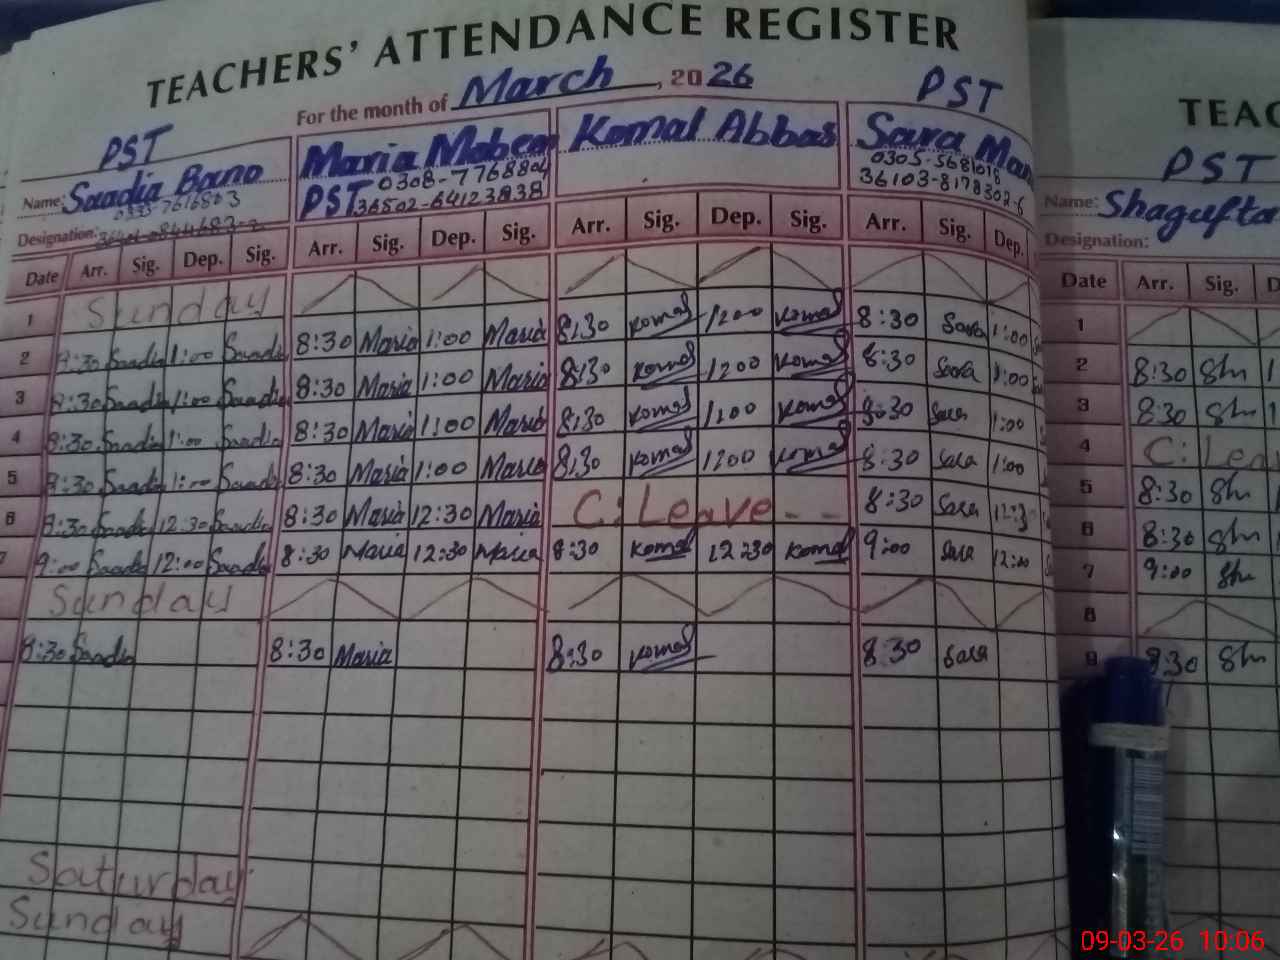 TEACHERS' ATTENDANCE REGISTER
For the month of March, 2026
PST
Name: Saadia Bano
Designation:
Maria Mobeen
0308-7768804
PST 36502-64123838
Komal Abbas
PST
Sara
0305-5681018
36103-8178302-6
Date Arr. Sig. Dep. Sig. Arr. Sig. Dep. Sig. Arr. Sig. Dep. Sig. Arr. Sig. Dep.
1 Sunday
2 8:30 Saadia 1:00 Saadia 8:30 Maria 1:00 Maria 8:30 Komal 1:00 Komal 8:30 Sara 1:00
3 8:30 Saadia 1:00 Saadia 8:30 Maria 1:00 Maria 8:30 Komal 1:00 Komal 8:30 Sara 1:00
4 8:30 Saadia 1:00 Saadia 8:30 Maria 1:00 Maria 8:30 Komal 1:00 Komal 8:30 Sara 1:00
5 8:30 Saadia 1:00 Saadia 8:30 Maria 1:00 Maria 8:30 Komal 1:00 Komal 8:30 Sara 1:00
6 8:30 Saadia 12:30 Saadia 8:30 Maria 12:30 Maria C:Leave-- 8:30 Sara 12:3
7 9:00 Saadia 12:00 Saadia 8:30 Maria 12:30 Maria 8:30 Komal 12:30 Komal 9:00 Sara 12:00
Sunday
8:30 Saadia 8:30 Maria 8:30 Komal 8:30 Sara
Saturday
Sunday
TEAC
PST
Name: Shagufta
Designation:
Date Arr. Sig. D
1
2 8:30 Sh 1
3 8:30 Sh
4 C: Leav
5 8:30 Sh
6 8:30 Sh
7 9:00 Sh
8
9 8:30 Sh
09-03-26 10:06